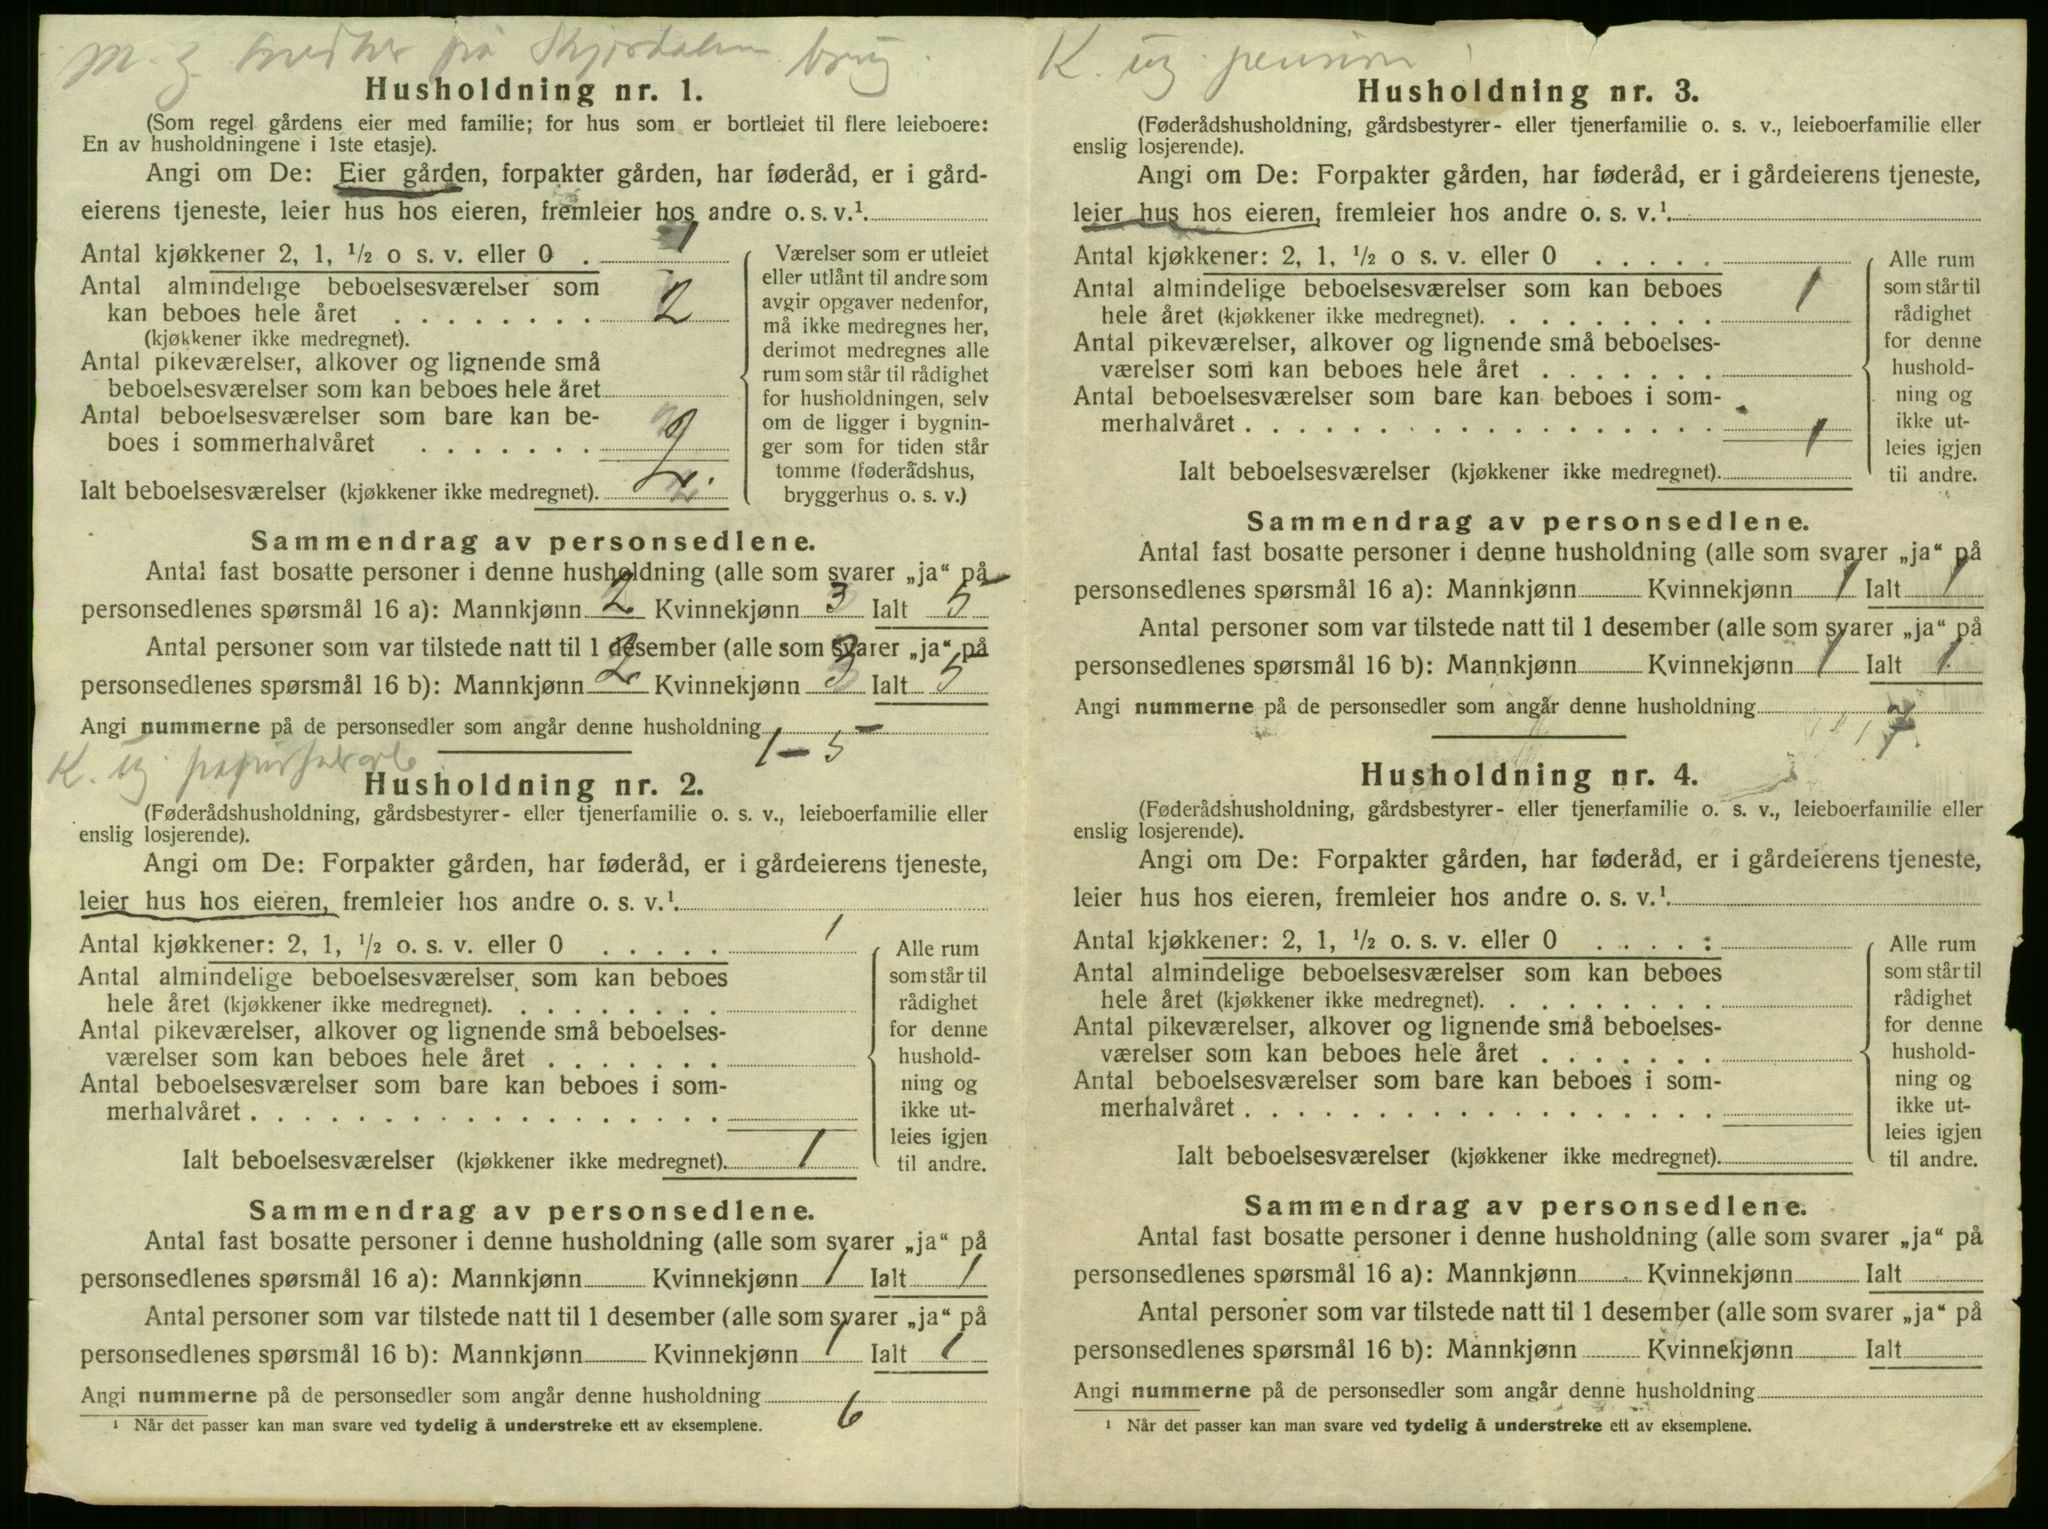 M. g. smed på Skjærdalens brug.
Husholdning nr. 1.
(Som regel gårdens eier med familie; for hus som er bortleiet til flere leieboere:
En av husholdningene i 1ste etasje).
Angi om De: Eier gården, forpakter gården, har føderåd, er i gård-
eierens tjeneste, leier hus hos eieren, fremleier hos andre o. s. v.¹
Antal kjøkkener 2, 1, ½ o s. v. eller 0 . 1
Antal almindelige beboelsesværelser som
kan beboes hele året . . . . . . . . 2
(kjøkkener ikke medregnet).
Antal pikeværelser, alkover og lignende små
beboelsesværelser som kan beboes hele året
Antal beboelsesværelser som bare kan be-
boes i sommerhalvåret . . . . . . .
Ialt beboelsesværelser (kjøkkener ikke medregnet). 2.
Værelser som er utleiet
eller utlånt til andre som
avgir opgaver nedenfor,
må ikke medregnes her,
derimot medregnes alle
rum som står til rådighet
for husholdningen, selv
om de ligger i bygnin-
ger som for tiden står
tomme (føderådshus,
bryggerhus o. s. v.)
Sammendrag av personsedlene.
Antal fast bosatte personer i denne husholdning (alle som svarer „ja“ på
personsedlenes spørsmål 16 a): Mannkjønn 2 Kvinnekjønn 3 Ialt 5
Antal personer som var tilstede natt til 1 desember (alle som svarer „ja“ på
personsedlenes spørsmål 16 b): Mannkjønn 2 Kvinnekjønn 3 Ialt 5
Angi nummerne på de personsedler som angår denne husholdning 1-5
K. ug
Husholdning nr. 2.
(Føderådshusholdning, gårdsbestyrer- eller tjenerfamilie o. s. v., leieboerfamilie eller
enslig losjerende).
Angi om De: Forpakter gården, har føderåd, er i gårdeierens tjeneste,
leier hus hos eieren, fremleier hos andre o. s. v.¹
Antal kjøkkener: 2, 1, ½ o. s. v. eller 0 . . . . . 1
Antal almindelige beboelsesværelser som kan beboes
hele året (kjøkkener ikke medregnet). . . . . . . .
Antal pikeværelser, alkover og lignende små beboelses-
værelser som kan beboes hele året . . . . . . .
Antal beboelsesværelser som bare kan beboes i som-
merhalvåret . . . . . . . . . . . . . . . . . .
Ialt beboelsesværelser (kjøkkener ikke medregnet). 1
Alle rum
som står til
rådighet
for denne
hushold-
ning og
ikke ut-
leies igjen
til andre.
Sammendrag av personsedlene.
Antal fast bosatte personer i denne husholdning (alle som svarer „ja“ på
personsedlenes spørsmål 16 a): Mannkjønn Kvinnekjønn 1 Ialt 1
Antal personer som var tilstede natt til 1 desember (alle som svarer „ja“ på
personsedlenes spørsmål 16 b): Mannkjønn Kvinnekjønn 1 Ialt 1
Angi nummerne på de personsedler som angår denne husholdning 6
¹ Når det passer kan man svare ved tydelig å understreke ett av eksemplene.
K. ug pension
Husholdning nr. 3.
(Føderådshusholdning, gårdsbestyrer- eller tjenerfamilie o. s. v., leieboerfamilie eller
enslig losjerende).
Angi om De: Forpakter gården, har føderåd, er i gårdeierens tjeneste,
leier hus hos eieren, fremleier hos andre o. s. v.¹
Antal kjøkkener: 2, 1, ½ o s. v. eller 0 . . . . .
Antal almindelige beboelsesværelser som kan beboes
hele året (kjøkkener ikke medregnet). . . . . . . . 1
Antal pikeværelser, alkover og lignende små beboelses-
værelser som kan beboes hele året . . . . . . .
Antal beboelsesværelser som bare kan beboes i som-
merhalvåret . . . . . . . . . . . . . . . . . .
Ialt beboelsesværelser (kjøkkener ikke medregnet). 1
Alle rum
som står til
rådighet
for denne
hushold-
ning og
ikke ut-
leies igjen
til andre.
Sammendrag av personsedlene.
Antal fast bosatte personer i denne husholdning (alle som svarer „ja“ på
personsedlenes spørsmål 16 a): Mannkjønn Kvinnekjønn 1 Ialt 1
Antal personer som var tilstede natt til 1 desember (alle som svarer „ja“ på
personsedlenes spørsmål 16 b): Mannkjønn Kvinnekjønn 1 Ialt 1
Angi nummerne på de personsedler som angår denne husholdning 7
Husholdning nr. 4.
(Føderådshusholdning, gårdsbestyrer- eller tjenerfamilie o. s. v., leieboerfamilie eller
enslig losjerende).
Angi om De: Forpakter gården, har føderåd, er i gårdeierens tjeneste,
leier hus hos eieren, fremleier hos andre o. s. v.¹
Antal kjøkkener: 2, 1, ½ o. s. v. eller 0 . . . . .
Antal almindelige beboelsesværelser som kan beboes
hele året (kjøkkener ikke medregnet). . . . . . . .
Antal pikeværelser, alkover og lignende små beboelses-
værelser som kan beboes hele året . . . . . . .
Antal beboelsesværelser som bare kan beboes i som-
merhalvåret . . . . . . . . . . . . . . . . . .
Ialt beboelsesværelser (kjøkkener ikke medregnet).
Alle rum
som står til
rådighet
for denne
hushold-
ning og
ikke ut-
leies igjen
til andre.
Sammendrag av personsedlene.
Antal fast bosatte personer i denne husholdning (alle som svarer „ja“ på
personsedlenes spørsmål 16 a): Mannkjønn Kvinnekjønn Ialt
Antal personer som var tilstede natt til 1 desember (alle som svarer „ja“ på
personsedlenes spørsmål 16 b): Mannkjønn Kvinnekjønn Ialt
Angi nummerne på de personsedler som angår denne husholdning
¹ Når det passer kan man svare ved tydelig å understreke ett av eksemplene.